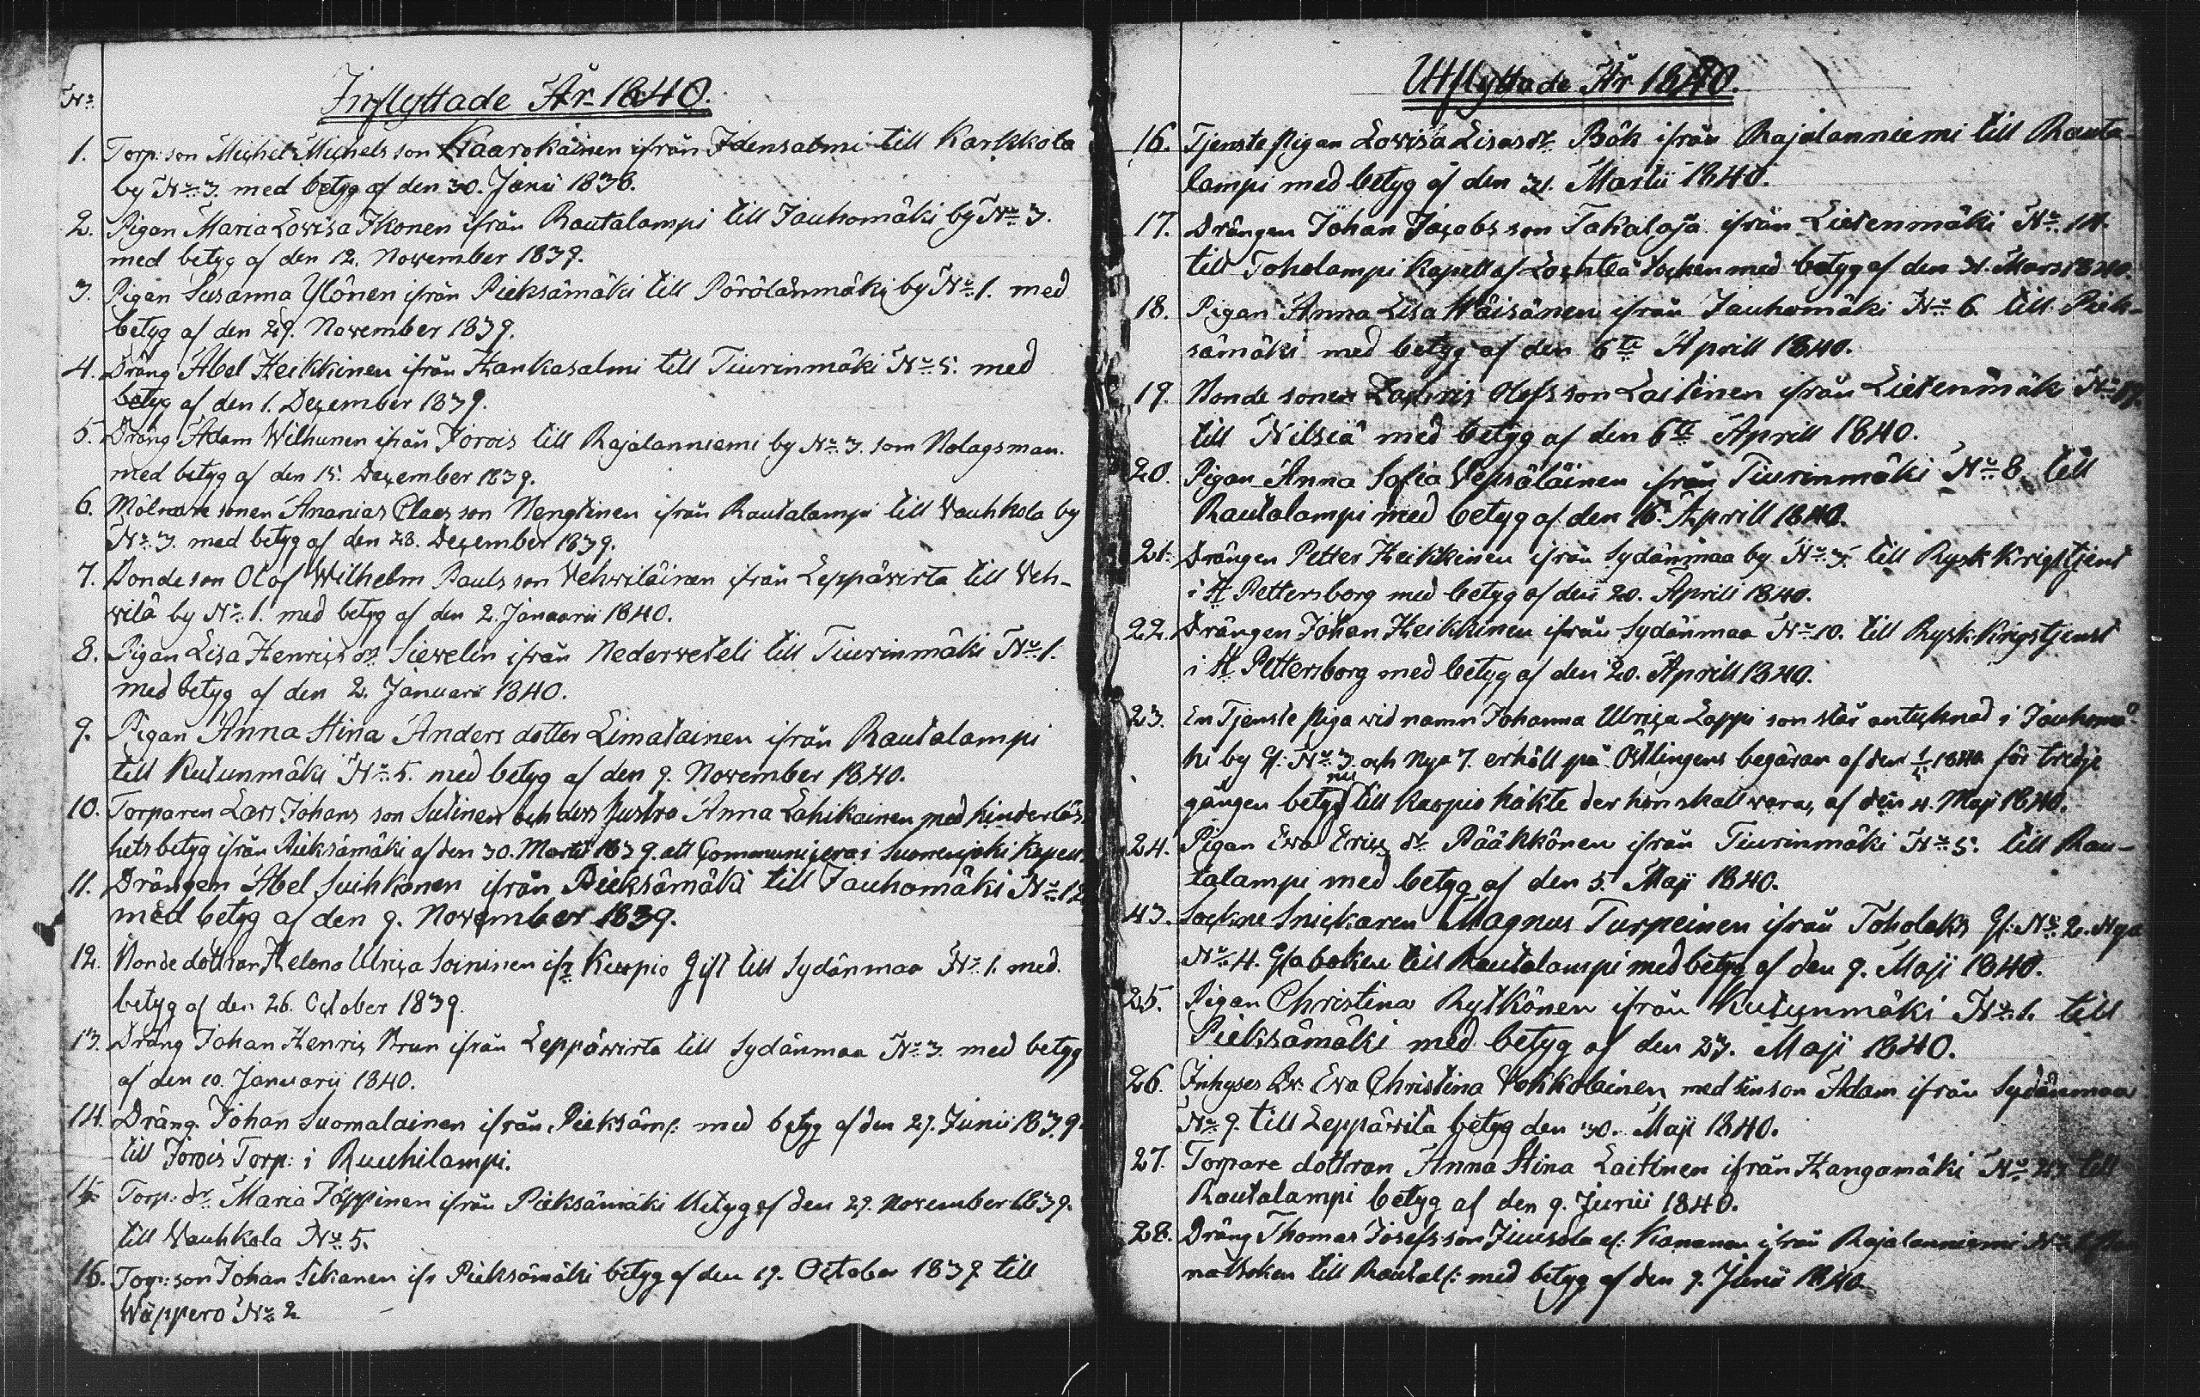 No
Inflyttade År 1840.
1. Torp: son Michel Michelsson Kaarokainen ifrån Idensalmi till Karkkola
by No 3. med betyg af den 30. Junii 1838.
2. Pigan Maria Lovisa Ikonen ifrån Rautalampi till Jauhomäki by No 3.
med betyg af den 12. November 1839.
3. Pigan Susanna Ylönen ifrån Pieksämäki till Pörölänmäki by No 1. med
betyg af den 29. November 1839.
4. Dräng Abel Heikkinen ifrån Hankasalmi till Tiurinmäki No 5. med
betyg af den 1. December 1839.
5. Dräng Adam Wilhunen ifrån Jorois till Rajalanniemi by No 3. som Bolagsman
med betyg af den 15. December 1839.
6. Mölnare sonen Ananias Claes son Nengtinen ifrån Rautalampi till Vauhkola by
No 3. med betyg af den 28. December 1839.
7. Bonde son Olof Wilhelm Pauls son Vehviläinen ifrån Leppävirta till Veh-
vilä by No 1. med betyg af den 2. Januarii 1840.
8. Pigan Lisa Henrics dr Sievelin ifrån Nederveteli till Tiurinmäki No 1.
med betyg af den 2. Januari 1840.
9. Pigan Anna Stina Anders dotter Limatainen ifrån Rautalampi
till Kutunmäki No 5. med betyg af den 9. November 1840.
10. Torparen Lars Johans son Sutinen och dess hustro Anna Lahikainen med hinderlös
hets betyg ifrån Pieksämäki af den 30. Martii 1839. att Communicera i Suonenjoki Kapell
11. Drängen Abel Suihkonen ifrån Pieksämäki till Jauhomäki No 12
med betyg af den 9. November 1839.
12. Bonde dottran Helena Ulrica Soininen ifr Kuopio Gift till Sydänmaa No 1. med
betyg af den 26. October 1839.
13. Dräng Johan Henric Brun ifrån Leppävirta till Sydänmaa No 3. med betyg
af den 10. Januarii 1840.
14. Dräng Johan Suomalainen ifrån Pieksäm: med betyg af den 27. Junii 1839
till Jorois Torp: i Ruuhilampi.
15 Torp: dr Maria Jäppinen ifrån Pieksämäki Betyg af den 29. November 1839.
till Vauhkola No 5.
16. Torp: son Johan Sikanen ifr Pieksämäki betyg af den 19. October 1839 till
Wäppero No 2
Utflyttade År 1840.
16. Tjenste Pigan Lovisa Lisas dr Bök ifrån Rajalanniemi till Rauta-
lampi med betyg af den 31. Martii 1840.
17. Drängen Johan Jacobs son Takaloja ifrån Lietenmäki No 14.
till Toholampi Kapell af Lochteå Socken med betyg af den 31. Mars 1840.
18. Pigan Anna Lisa Wäisänen ifrån Jauhomäki No 6 till Piek-
sämäki med betyg af den 6te Aprill 1840.
19. Bonde sonen Zachris Olofs son Laitinen ifrån Lietenmäk No 17.
till Nilsiä med betyg af den 6te Aprill 1840.
20. Pigan Anna Sofia Vepsäläinen ifrån Tiurinmäki No 8. till
Rautalampi med betyg af den 16. Aprill 1840.
21. Drängen Petter Heikkinen ifrån Sydänmaa by No 3. till Rysk Krigstjenst
i St Pettersborg med betyg af den 20. Aprill 1840.
22. Drängen Johan Heikkinen ifrån Sydänmaa No 10. till Rysk Krigstjenst
i St Pettersborg med betyg af den 20. Aprill 1840.
23. En Tjenste Piga vid namn Johanna Ulrica Lappi son står antecknad i Jauhomä
ki by Gl: No 3 och Nya 7. erhöll på Östlingens begäran af den 1840 för tredje
gången betyg nu till Kuopio häkte der hon skall vara, af den 4. Maji 1840.
24. Pigan Eva Erics dr Pääkkönen ifrån Tiurinmäki No 5. till Rau-
talampi med betyg af den 5. Maji 1840.
43. Sockne Snickaren Magnus Turpeinen ifrån Toholaks Gl: No 2. Nya
No 4. Gla boken till Rautalampi med betyg af den 9. Maji 1840.
25. Pigan Christina Rytkönen ifrån Kutunmäki No 1. till
Pieksämäki med betyg af den 23. Maji 1840.
26. Inhyses Qv: Eva Christina Vokkolainen med sin son Adam ifrån Sydänmaa
No 9. till Leppävita betyg den 30. Maji 1840.
27. Torpare dottran Anna Stina Laitinen ifrån Hangamäki No 23 till
Rautalampi betyg af den 9. Junii 1840.
28. Dräng Thomas Josefs son Juusola el: Kananen ifrån Rajalanniemi No
nattboken till Rautal: med betyg af den 9. Junii 1840